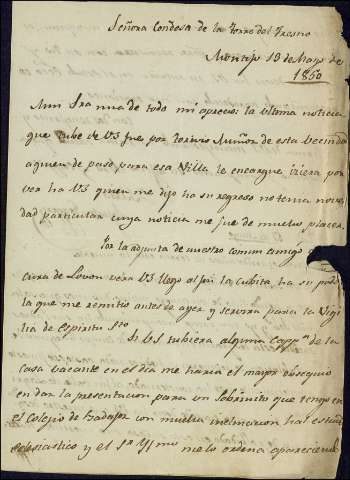 Señora Condesa de la Torre del Fresno
Montijo 18 de Mayo de
1850
Muy Sra mia de todo mi aprecio: la ultima noticia
que tube de VS fue por Torivio Muñoz de esta becindad
aquien de paso para esa Villa le encargue iciera por
ver ha VS quien me dijo ha su regreso no tenia nove
dad particular cuya noticia me fue de mucho placer.
Por la adjunta de nuestro comun amigo
cura de Lovon vera VS llego al fin la cubita, ha su pod
la que me remitio antes de ayer y servira para la Vigi
lia de Espiritu Sto
Si VS tubiera alguna Capp.n de la
casa bacante en el dia me haria el mayor obsequio
en dar la presentacion para un Sobrinito que tengo en
el Colegio de Badajoz con mucha inclinacion hal estad
eclesiastico y el Sr Yllmo me lo ordena apareciend